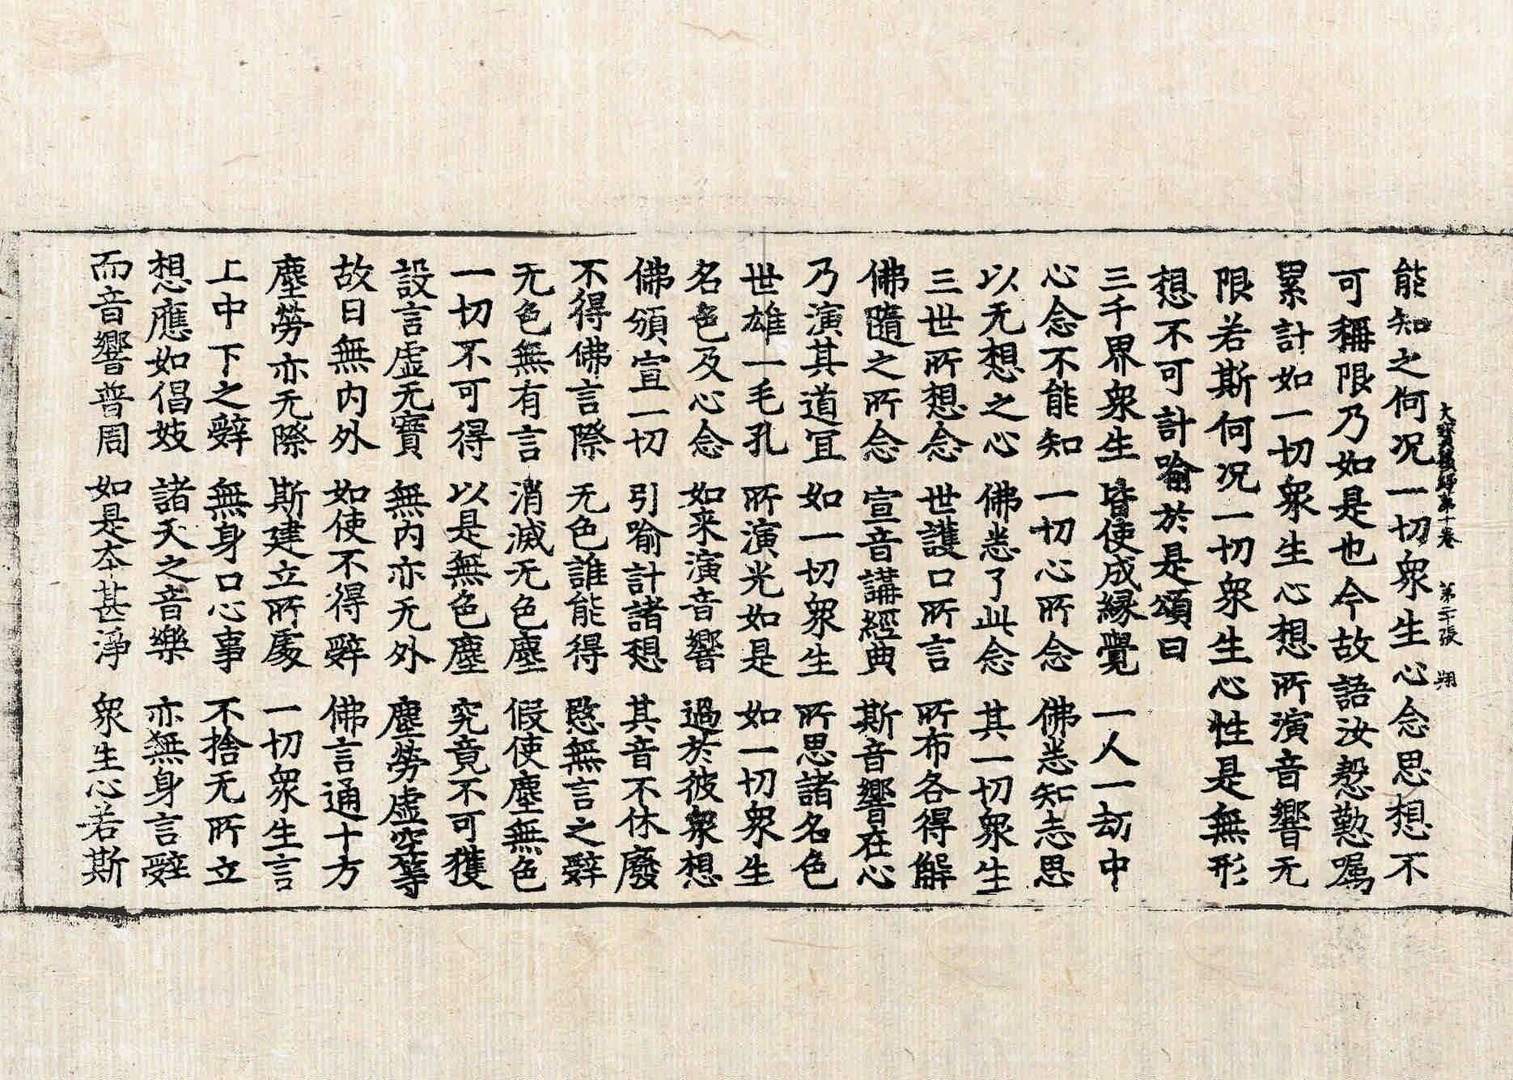 大寶積經第十卷 第二十張 翔
能知之何况一切衆生心念思想不
可稱限乃如是也今故語汝慇懃囑
累計如一切衆生心想所演音響无
限若斯何况一切衆生心性是無形
想不可計喻於是頌曰
三千界衆生 皆使成縁覺 一人一劫中
心念不能知 一切心所念 佛悉知志思
以无想之心 佛悉了此念 其一切衆生
三世所想念 世護口所言 所布各得解
佛隨之所念 宣音講經典 斯音響在心
乃演其道冝 如一切衆生 所思諸名色
世雄一毛孔 所演光如是 如一切衆生
名色及心念 如来演音響 過於彼衆想
佛頒宣一切 引喻計諸想 其音不休廢
不得佛言際 无色誰能得 愍無言之辭
无色無有言 消滅无色塵 假使塵無色
一切不可得 以是無色塵 究竟不可獲
設言虛无實 無内亦无外 塵勞虛空等
故曰無内外 如使不得辭 佛言通十方
塵勞亦无際 斯建立所處 一切衆生言
上中下之辭 無身口心事 不捨无所立
想應如倡妓 諸天之音樂 亦無身言辭
而音響普周 如是夲甚淨 衆生心若斯